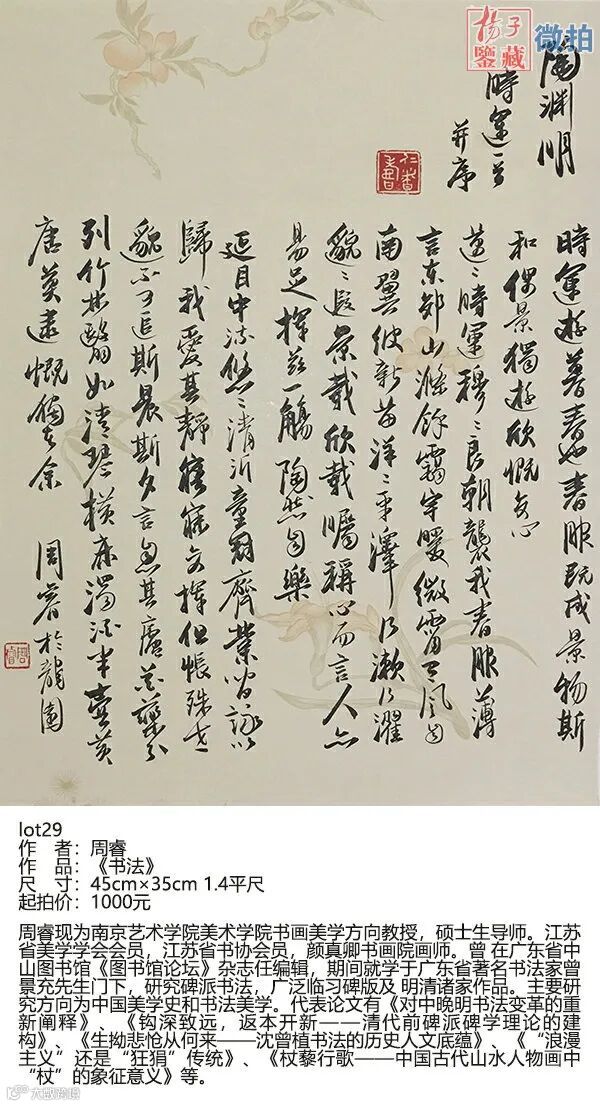 楊子
鑒藏
微拍
陶淵明
時運一首
并序
仁者壽
時運游暮春也春服既成景物斯
和偶景獨遊欣慨交心
邁々時運穆々良朝襲我春服薄
言東郊山滌餘靄宇暖微霄有風自
南翼彼新苗洋々平澤乃漱乃濯
邈々遐景載欣載矚稱心而言人亦
易足揮茲一觴陶然自樂
延目中流悠々清沂童冠齊業閒詠以
歸我愛其靜寤寐交揮但悵殊世
邈不可追斯晨斯夕言息其廬花藥分
列竹林翳如清琴横床濁酒半壺黄
唐莫逮慨獨在余 周睿於龍園
lot29
作 者：周睿
作 品：《书法》
尺 寸：45cm×35cm 1.4平尺
起拍价：1000元
周睿现为南京艺术学院美术学院书画美学方向教授，硕士生导师。江苏
省美学学会会员，江苏省书协会员，颜真卿书画院画师。曾 在广东省中
山图书馆《图书馆论坛》杂志任编辑，期间就学于广东省著名书法家曾
景充先生门下，研究碑派书法，广泛临习碑版及 明清诸家作品。主要研
究方向为中国美学史和书法美学。代表论文有《对中晚明书法变革的重
新阐释》、《钩深致远，返本开新——清代前碑派碑学理论的建
构》、《生拗悲怆从何来——沈曾植书法的历史人文底蕴》、《“浪漫
主义”还是“狂狷”传统》、《杖藜行歌——中国古代山水人物画中
“杖”的象征意义》等。
大数跨境